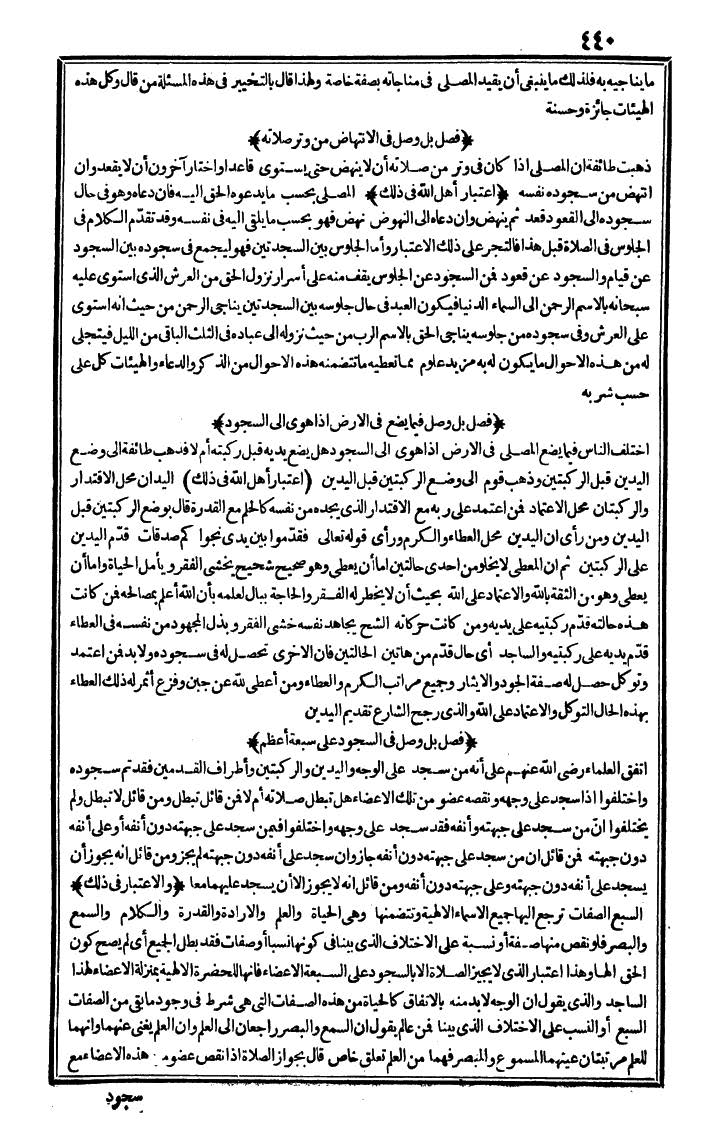 ٤٤٠
ما يناجيه به فلذلك ما ينبغى أن يقيد المصلى فى مناجاته بصفة خاصة ولهذا قال بالتخيير فى هذه المسئلة من قال وكل هذه
الهيئات جائزة وحسنة
﴿فصل بل وصل فى الانتهاض من وتر صلاته﴾
ذهبت طائفة ان المصلى اذا كان فى وتر من صلاته أن لا ينهض حتى يستوى قاعدا واختار آخرون أن لا يقعد وان
انتهض من سجوده نفسه ﴿اعتبار أهل الله فى ذلك﴾ المصلى بحسب ما يدعوه الحق اليه فان دعاه وهو فى حال
سجوده الى القعود قعد ثم ينهض وان دعاه الى النهوض نهض فهو بحسب ما يلقى اليه فى نفسه وقد تقدّم الكلام فى
الجلوس فى الصلاة قبل هذا فالتجر على ذلك الاعتبار وأما الجلوس بين السجدتين فهو ليجمع فى سجوده بين السجود
عن قيام والسجود عن قعود فمن السجود عن الجلوس يقف منه على أسرار نزول الحق من العرش الذى استوى عليه
سبحانه بالاسم الرحمن الى السماء الدنيا فيكون العبد فى حال جلوسه بين السجدتين يناجى الرحمن من حيث انه استوى
على العرش وفى سجوده من جلوسه يناجى الحق بالاسم الرب من حيث نزوله الى عباده فى الثلث الباقى من الليل فيتجلى
له من هذه الاحوال ما يكون له به مزيد علوم مما تعطيه ما تتضمنه هذه الاحوال من الذكر والدعاء والهيئات كل على
حسب شربه
﴿فصل بل وصل فيما يضع فى الارض اذا هوى الى السجود﴾
اختلف الناس فيما يضع المصلى فى الارض اذا هوى الى السجود هل يضع يديه قبل ركبتيه أم لا فذهب طائفة الى وضع
اليدين قبل الركبتين وذهب قوم الى وضع الركبتين قبل اليدين (اعتبار أهل الله فى ذلك) اليدان محل الاقتدار
والركبتان محل الاعتماد فمن اعتمد على ربه مع الاقتدار الذى يجده من نفسه كالحلم مع القدرة قال بوضع الركبتين قبل
اليدين ومن رأى ان اليدين محل العطاء والكرم ورأى قوله تعالى فقدّموا بين يدى نجوا كم صدقات قدّم اليدين
على الركبتين ثم ان المعطى لا يخلو من احدى حالتين اما أن يعطى وهو صحيح شحيح يخشى الفقر ويأمل الحياة واما أن
يعطى وهو من الثقة بالله والاعتماد على الله بحيث أن لا يخطر له الفقر والحاجة ببال لعلمه بأن الله أعلم بمصالحه فمن كانت
هذه حالته قدّم ركبتيه على يديه ومن كانت حركاته الشح يجاهد نفسه خشى الفقر وبذل المجهود من نفسه فى العطاء
قدّم يديه على ركبتيه والساجد أى حال قدّم من هاتين الحالتين فان الاخرى تحصل له فى سجوده ولا بد فمن اعتمد
وتوكل حصل له صفة الجود والايثار وجميع مراتب الكرم والعطاء ومن أعطى لله عن جبن وفزع أثمر له ذلك العطاء
بهذه الحال التوكل والاعتماد على الله والذى رجح الشارع تقديم اليدين
﴿فصل بل وصل فى السجود على سبعة أعظم﴾
اتفق العلماء رضى الله عنهم على أنه من سجد على الوجه واليدين والركبتين وأطراف القدمين فقد تم سجوده
واختلفوا اذا سجد على وجهه ونقصه عضو من تلك الاعضاء هل تبطل صلاته أم لا فمن قائل تبطل ومن قائل لا تبطل ولم
يختلفوا انّ من سجد على جبهته وأنفه فقد سجد على وجهه واختلفوا فيمن سجد على جبهته دون أنفه أو على أنفه
دون جبهته فمن قائل ان من سجد على جبهته دون أنفه جاز وان سجد على أنفه دون جبهته لم يجز ومن قائل انه يجوز أن
يسجد على أنفه دون جبهته وعلى جبهته دون أنفه ومن قائل انه لا يجوز الا أن يسجد عليهما معا ﴿والاعتبار فى ذلك﴾
السبع الصفات ترجع اليها جميع الاسماء الالهية وتتضمنها وهى الحياة والعلم والارادة والقدرة والكلام والسمع
والبصر فلو نقص منها صفة أو نسبة على الاختلاف الذى بينا فى كونها نسبا أو صفات فقد بطل الجميع أى لم يصح كون
الحق الها وهذا اعتبار الذى لا يجيز الصلاة الا بالسجود على السبعة الاعضاء فانها للحضرة الالهية بمنزلة الاعضاء لهذا
الساجد والذى يقول ان الوجه لا بد منه بالاتفاق كالحياة من هذه الصفات التى هى شرط فى وجود ما بقى من الصفات
السبع أو النسب على الاختلاف الذى بينا فمن عالم يقول ان السمع والبصر راجعان الى العلم وان العلم يغنى عنهما وانهما
للعلم مرتبتان عينهما المسموع والمبصر فهما من العلم تعلق خاص قال بجواز الصلاة اذا نقص عضو من هذه الاعضاء مع
سجود